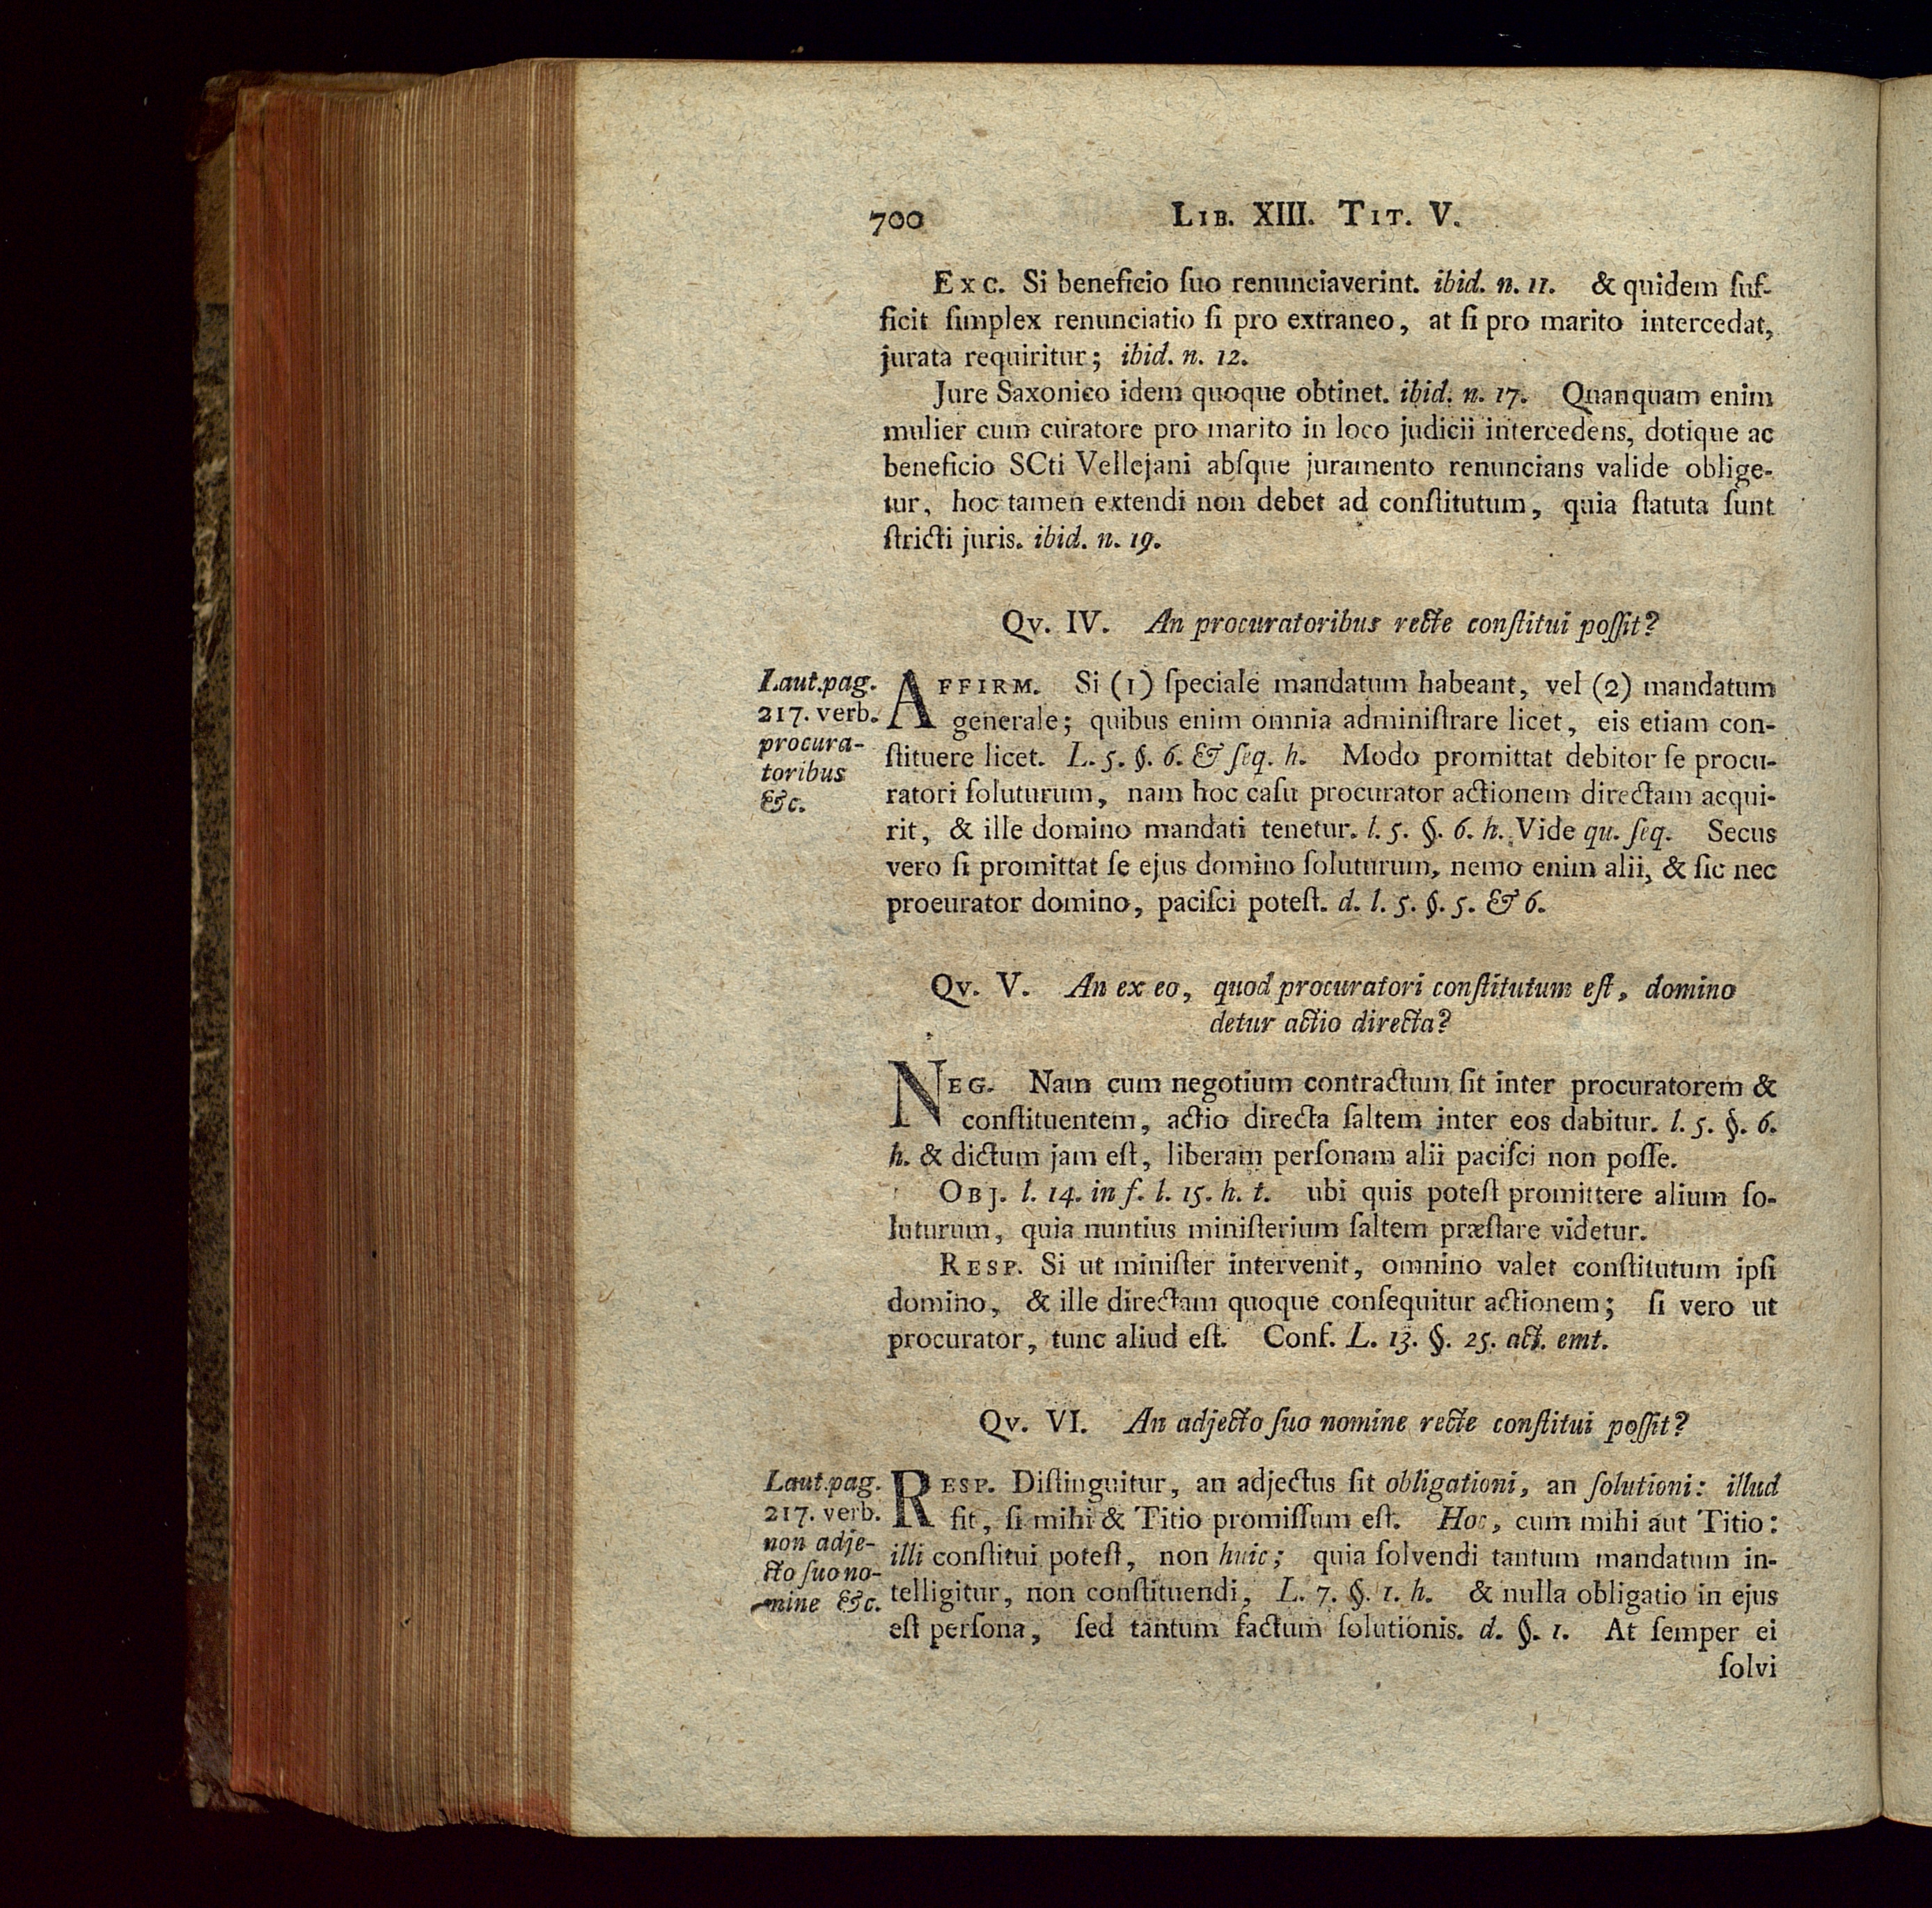 700 LIB. XIII. TIT. V.
EXC. Si beneficio ſuo renunciaverint. ibid. n. 11. & quidem ſuf-
ficit ſimplex renunciatio ſi pro extraneo, at ſi pro marito intercedat,
jurata requiritur; ibid. n. 12.
Jure Saxonico idem quoque obtinet. ibid. n. 17. Quanquam enim
mulier cum curatore pro marito in loco judicii intercedens, dotique ac
beneficio SCti Vellejani abſque juramento renuncians valide oblige-
tur, hoc tamen extendi non debet ad conſtitutum, quia ſtatuta ſunt
ſtricti juris. ibid. n. 19.
Qv. IV. An procuratoribus recte conſtitui poſſit?
Laut.pag.
217. verb.
procura-
toribus
&c.
AFFIRM. Si (1) ſpeciale mandatum habeant, vel (2) mandatum
generale; quibus enim omnia adminiſtrare licet, eis etiam con-
ſtituere licet. L. 5. §. 6. & ſeq. h. Modo promittat debitor ſe procu-
ratori ſoluturum, nam hoc caſu procurator actionem directam acqui-
rit, & ille domino mandati tenetur. l. 5. §. 6. h. Vide qu. ſeq. Secus
vero ſi promittat ſe ejus domino ſoluturum, nemo enim alii, & ſic nec
proeurator domino, paciſci poteſt. d. l. 5. §. 5. & 6.
Qv. V. An ex eo, quod procuratori conſtitutum eſt, domino
detur actio directa?
NEG. Nam cum negotium contractum ſit inter procuratorem &
conſtituentem, actio directa ſaltem inter eos dabitur. l. 5. §. 6.
h. & dictum jam eſt, liberam perſonam alii paciſci non poſſe.
OBJ. l. 14. in f. l. 15. h. t. ubi quis poteſt promittere alium ſo-
luturum, quia nuntius miniſterium ſaltem præſtare videtur.
RESP. Si ut miniſter intervenit, omnino valet conſtitutum ipſi
domino, & ille directam quoque conſequitur actionem; ſi vero ut
procurator, tunc aliud eſt. Conf. L. 13. §. 25. act. emt.
Qv. VI. An adjecto ſuo nomine recte conſtitui poſſit?
Laut.pag.
217. verb.
non adje-
cto ſuo no-
mine &c.
RESP. Diſtinguitur, an adjectus ſit obligationi, an ſolutioni: illud
fit, ſi mihi & Titio promiſſum eſt. Hoc, cum mihi aut Titio:
illi conſtitui poteſt, non huic; quia ſolvendi tantum mandatum in-
telligitur, non conſtituendi, L. 7. §. 1. h. & nulla obligatio in ejus
eſt perſona, ſed tantum factum ſolutionis. d. §. 1. At ſemper ei
ſolvi